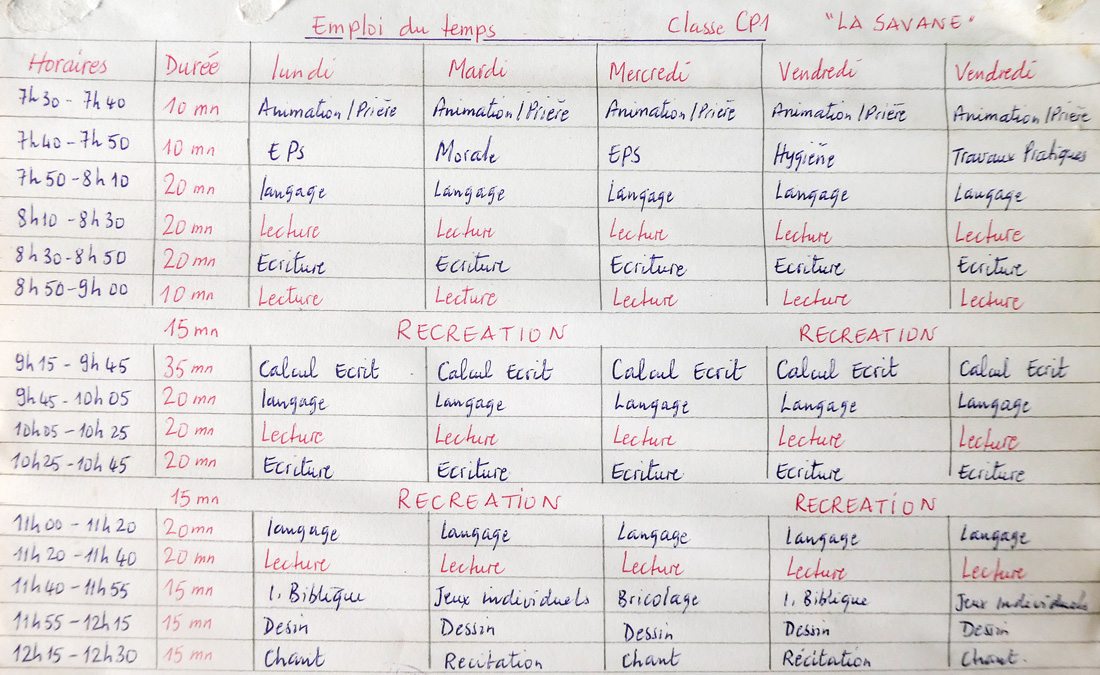 Emploi du temps Classe CP1 "LA SAVANE"
Horaires Durée lundi Mardi Mercredi Vendredi Vendredi
7h30 - 7h40 10 mn Animation/Prière Animation/Prière Animation/Prière Animation/Prière Animation/Prière
7h40 - 7h50 10 mn EPs Morale EPS Hygiène Travaux Pratiques
7h50 - 8h10 20 mn langage Langage Langage Langage Langage
8h10 - 8h30 20 mn Lecture Lecture Lecture Lecture Lecture
8h30 - 8h50 20 mn Ecriture Ecriture Ecriture Ecriture Ecriture
8h50 - 9h00 10 mn Lecture Lecture Lecture Lecture Lecture
15 mn RECREATION RECREATION
9h15 - 9h45 35 mn Calcul Ecrit Calcul Ecrit Calcul Ecrit Calcul Ecrit Calcul Ecrit
9h45 - 10h05 20 mn langage Langage Langage Langage Langage
10h05 - 10h25 20 mn Lecture Lecture Lecture Lecture Lecture
10h25 - 10h45 20 mn Ecriture Ecriture Ecriture Ecriture Ecriture
15 mn RECREATION RECREATION
11h00 - 11h20 20 mn langage Langage Langage Langage Langage
11h20 - 11h40 20 mn Lecture Lecture Lecture Lecture Lecture
11h40 - 11h55 15 mn I. Biblique Jeux individuels Bricolage I. Biblique Jeux individuels
11h55 - 12h15 15 mn Dessin Dessin Dessin Dessin Dessin
12h15 - 12h30 15 mn Chant Recitation Chant Récitation Chant.